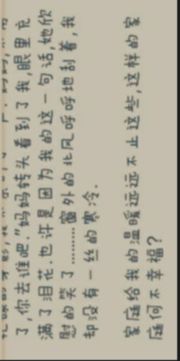 了,你去谁吧.”妈妈转头看到了我眼里充
满了泪花.也许是因为我的这一句话,她欣
慰的笑了………窗外的北风呼呼地刮着,我
却没有一丝的寒冷.
家庭给我的温暖远远不止这些,这样的家
庭何不幸福?